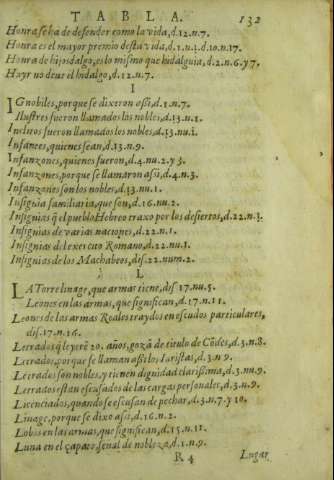 TABLA. 132
Honra se ha de defender como la vida, d.12.n.7.
Honra es el mayor premio desta vida, d.1.n.1.d.10.n.17.
Honra de hijosdalgo, es lo mismo que hidalguia, d.2.n.6.y 7.
Hayr no deue el hidalgo, d.12.n.7.
I
IGnobiles, porque se dixeron assi, d.1.n.7.
Illustres fueron llamados los nobles, d.13.n.1.
Inclitos fueron llamados los nobles, d.13.nu.1.
Infantes, quienes sean, d.13.n.9.
Infanzones, quienes fueron, d.4.nu.2.y 3.
Infanzones, porque se llamaron assi, d.4.n.3.
Infanzones son los nobles, d.13.nu.1.
Insignia familiaria, que son, d.16.nu.2.
Insignias q̃ el pueblo Hebreo traxo por los desiertos, d.22.n.3.
Insignias de varias naciones, d.22.n.1.
Insignias del exercito Romano, d.22.nu.1.
Insignias de los Machabeos, dis.22.num.2.
L
LA Torre linage, que armas tiene, dis.17.nu.5.
Leones en las armas, que significan, d.17.n.11.
Leones de las armas Reales traydos en escudos particulares,
dis.17.n.16.
Letrados q̃ leyerẽ 20. años, gozã de titulo de Cõdes, d.3.n.8.
Letrados, porque se llaman assi los Iuristas, d.3.n.9.
Letrados son nobles, y tienen dignidad clarissima, d.3.nu.9.
Letrados estan escusados de las cargas personales, d.3.n.9.
Licenciados, quando se escusan de pechar, d.3.n.7.y 10.
Linage, porque se dixo assi, d.16.n.2.
Lobos en las armas, que significan, d.15.n.11.
Luna en el çapato, señal de nobleza, d.1.n.9.
R 4 Lugar